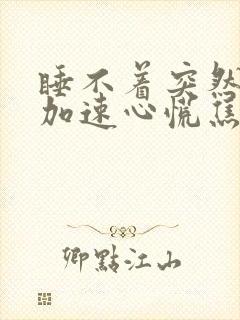 睡不着突然
加速心慌焦
卿點江山